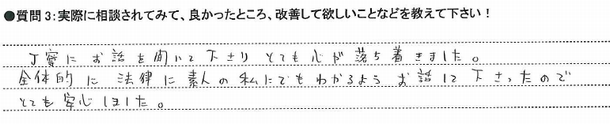 ●質問3:実際に相談されてみて、良かったところ、改善して欲しいことなどを教えて下さい!
丁寧に お話を聞いて下さり とても心が落ち着きました。
全体的に 法律に素人の私にでもわかるよう お話して下さったので
とても安心しました。